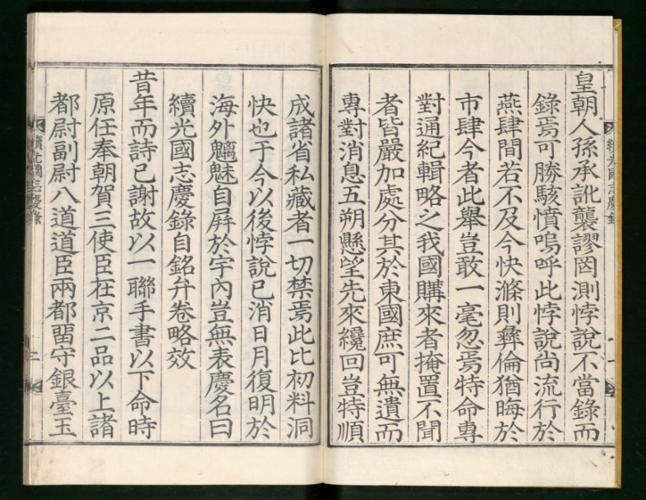 皇朝人孫承訛襲謬罔測悖說不當錄而
錄焉可勝駭憤嗚呼此悖說尙流行於
燕肆間若不及今快滌則彝倫猶晦於
市肆今者此擧豈敢一毫忽焉特命專
對通紀輯略之我國購來者掩置不聞
者皆嚴加處分其於東國庶可無遺而
專對消息五朔懸望先來纔回豈特順
成諸省私藏者一切禁焉此比初料洞
快也于今以後悖說已消日月復明於
海外魑魅自屛於宇內豈無表慶名曰
續光國志慶錄自銘弁卷略效
昔年而詩已謝故以一聯手書以下命時
原任奉朝賀三使臣在京二品以上諸
都尉副尉八道道臣兩都留守銀臺玉
續光國志慶錄
二
續光國志慶錄
一